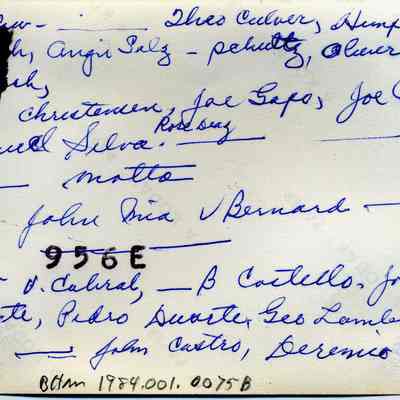 Theo Culver, Hump
Angie Salz - Schultz, Oliver
Christensen, Joe Gapo, Joe
Silva. Rose Diaz
Motta
John Mia V Bernard
956E
V. Cabral, - B Costello, Jo
te, Pedro Duarte, Geo Lambe
John Castro, Deremio
BHM 1984.001.0075B